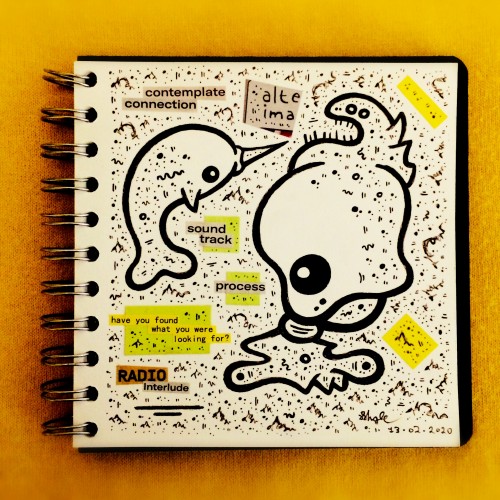 contemplate
connection
alte
ima
sound
track
process
have you found
what you were
looking for?
RADIO
Interlude
13-02-2020